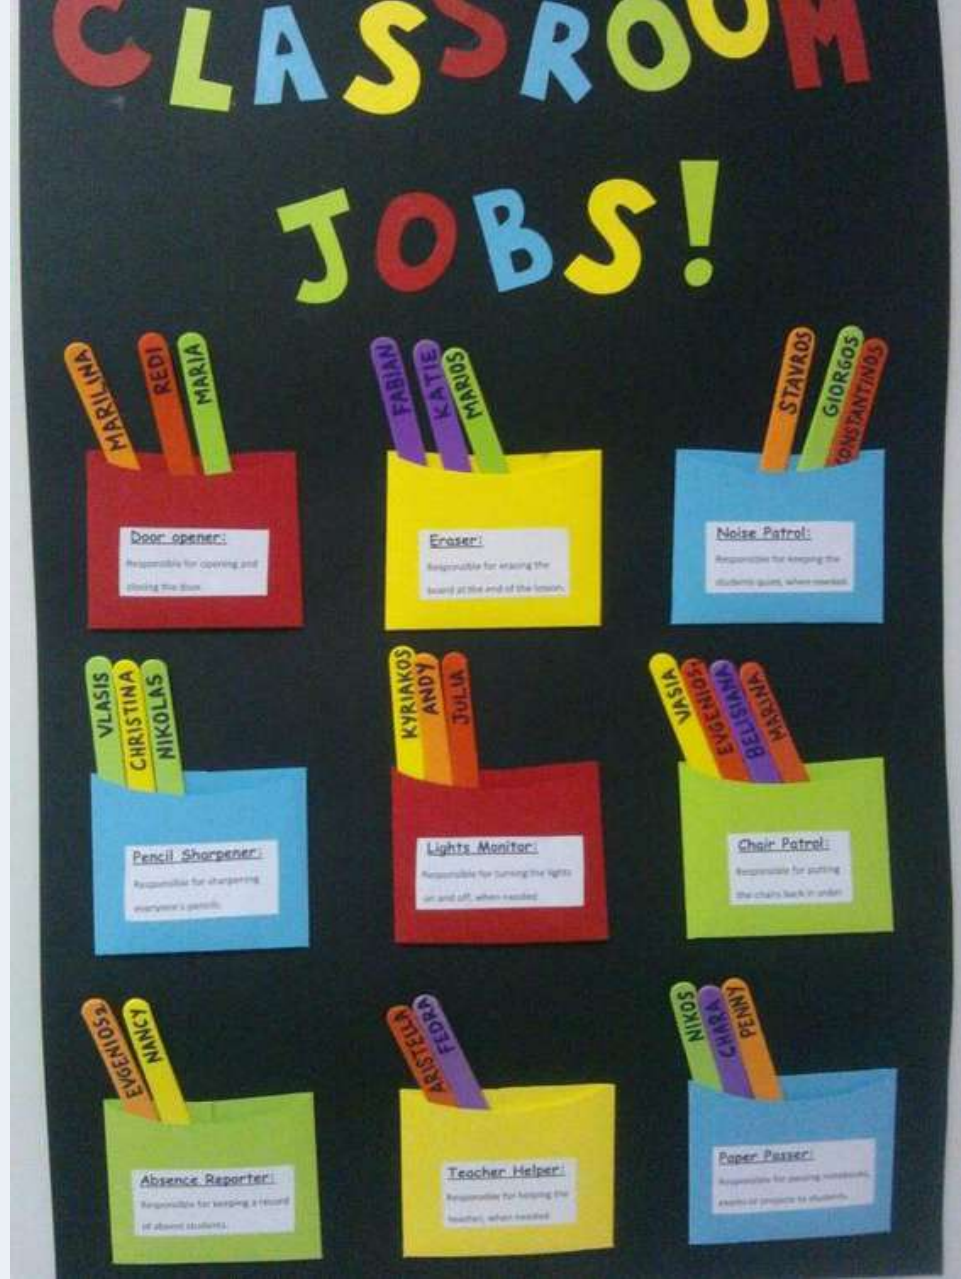 CLASSROOM
JOBS!
MARILINA
REDI
MARIA
Door opener:
Responsible for opening and
closing the door.
FABIAN
KATIE
MARIOS
Eraser:
Responsible for erasing the
board at the end of the lesson.
STAVROS
GIORGOS
KONSTANTINOS
Noise Patrol:
Responsible for keeping the
students quiet, when needed.
VLASIS
CHRISTINA
NIKOLAS
Pencil Sharpener:
Responsible for sharpening
everyone's pencils.
KYRIAKOS
ANDY
JULIA
Lights Monitor:
Responsible for turning the lights
on and off, when needed
VASIA
EVGENIOS1
BELISIANA
MARINA
Chair Patrol:
Responsible for putting
the chairs back in order.
EVGENIOS2
NANCY
Absence Reporter:
Responsible for keeping a record
of absent students.
ARISTELLA
FEDRA
Teacher Helper:
Responsible for helping the
teacher, when needed.
NIKOS
CHARA
PENNY
Paper Passer:
Responsible for passing notebooks,
exams or projects to students.